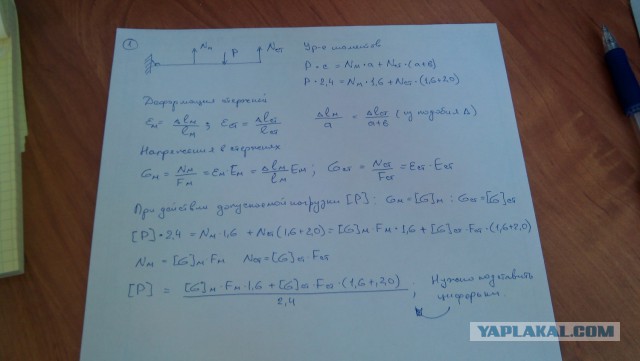 1
Nм P Nст
Ур-е моментов
P · c = Nм · a + Nст · (a+b)
P · 2,4 = Nм · 1,6 + Nст · (1,6+2,0)
Деформация стержней
εм = Δlм / lм ; εст = Δlст / lст    Δlм / a = Δlст / a+b (из подобия Δ)
Напряжения в стержнях
σм = Nм / Fм = εм · Eм = Δlм / lм Eм ; σст = Nст / Fст = εст · Eст
При действии допускаемой нагрузки [P] : σм = [σ]м ; σст = [σ]ст
[P] · 2,4 = Nм · 1,6 + Nст (1,6+2,0) = [σ]м Fм · 1,6 + [σ]ст · Fст · (1,6+2,0)
Nм = [σ]м Fм    Nст = [σ]ст · Fст
[P] = [σ]м · Fм · 1,6 + [σ]ст Fст · (1,6+2,0) / 2,4 ;
Нужно подставить
циферьки.
YAPLAKAL.COM